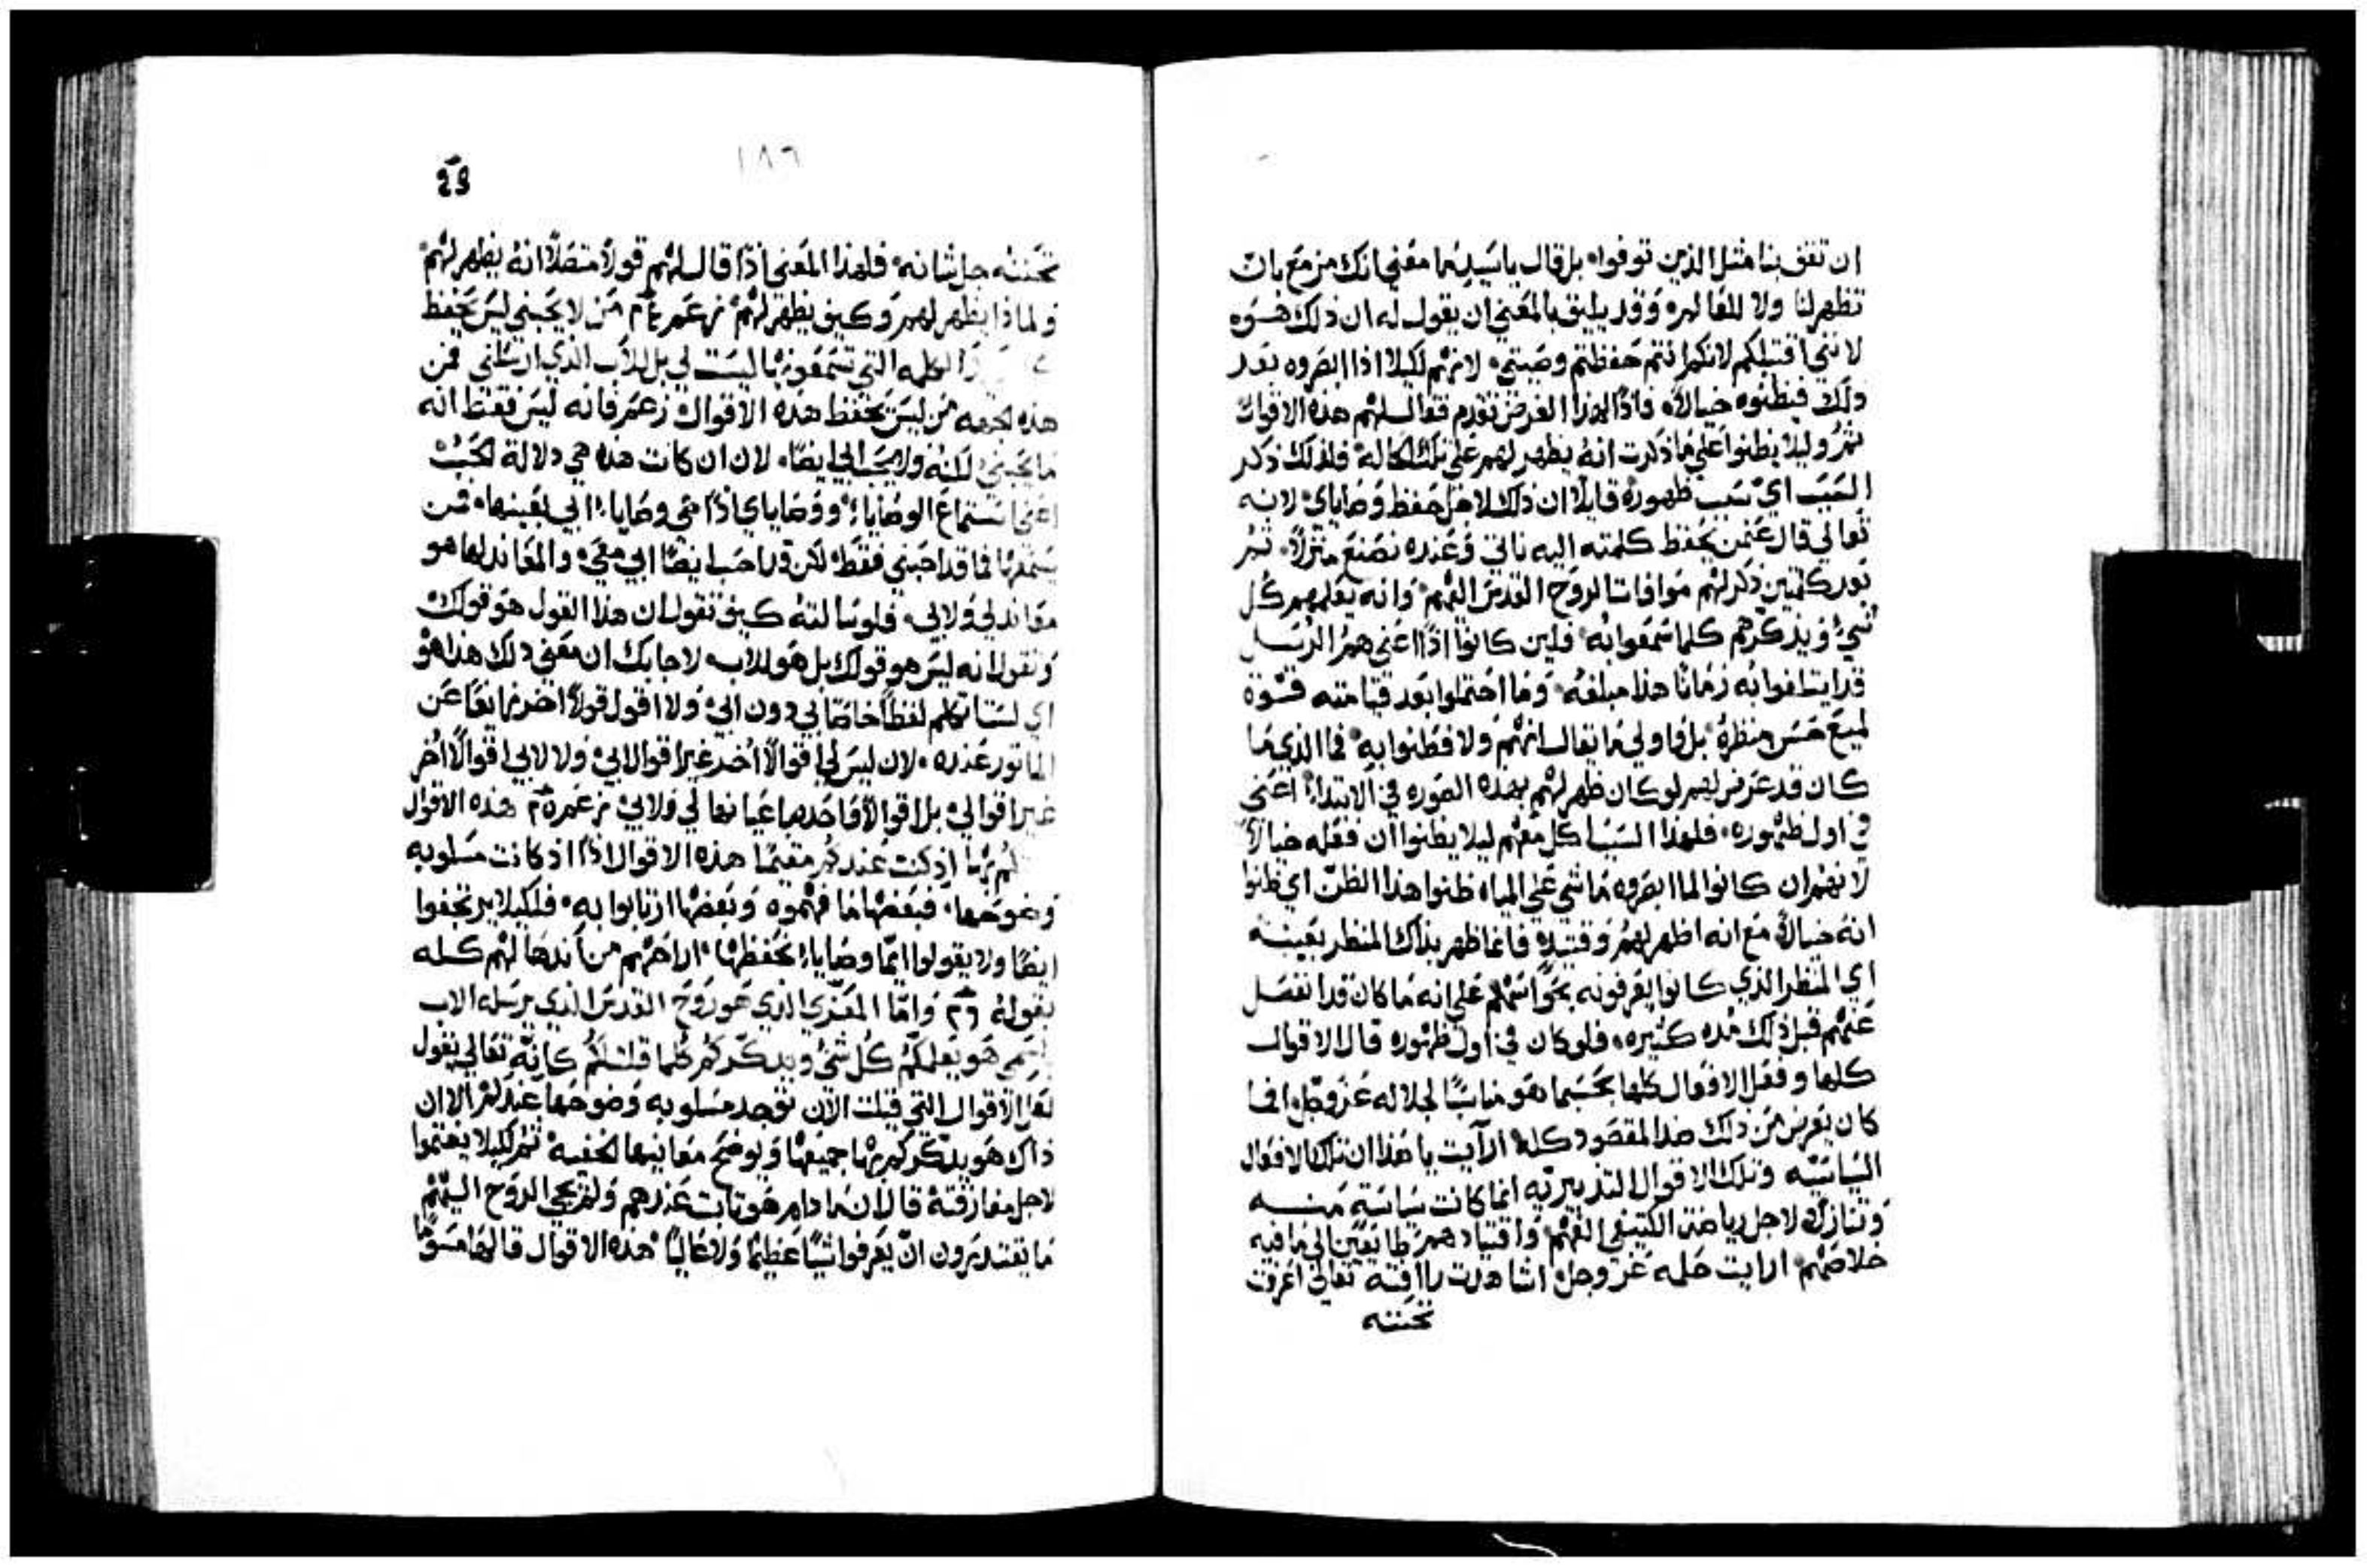 ان تقف بنا مثل الذين توفوا، بل قال يا سيد ما معني انك مزمع بان
تظهر لنا ولا للعالم، وقد يليق بالمعني ان يقول له ان ذلك هو
لانني اقتبلكم لانكم انتم حفظتم وصيتي، لانهم لكيلا اذا ابصروه بعد
ذلك فيظنوه خيالاً، فاذًا لهذا الغرض تقدم فقال لهم هذه الاقوال
ثم وليلا يظنوا علي ما ذكرت انه يظهر لهم علي تلك الحاله، فلذلك ذكر
السبب اي سبب ظهوره قايلا ان ذلك لاجل حفظ وصاياي، لانه
تعالي قال عن من يحفظ كلمته اليه ناتي وعنده نصنع منزلاً، ثم
بعد كلمتين ذكر لهم موافاة الروح القدس اليهم، وانه يعلمهم كل
شيء ويذكرهم كلما سمعوا به، فلين كانوا اذًا اعني هم الرسل
قد ايتلفوا به زمانًا هذا مبلغه، وما احتملوا بعد قيامته قوة
لميع حسن منظره، بل فاولي ما يقال انهم ولا فطنوا به، فما الذي ما
كان قد عرض لهم لو كان ظهر لهم بهذه الصوره في الابتداء، اعني
في اول ظهوره، فلهذا السبب اكل معهم ليلا يظنوا ان فعله خيالاً
لانهم ان كانوا لما ابصروه ماشي علي المياه ظنوا هذا الظن اي ظنوا
انه خيالاً، مع انه اظهر لهم وقتيذٍ فانما ظهر بذاك المنظر بعينه
اي المنظر الذي كانوا يعرفونه بحواسهم علي انه ما كان قد انفصل
عنهم قبل ذلك مده كثيره، فلو كان في اول ظهوره قال الاقوال
كلها وفعل الافعال كلها بحسبما هو مناسبًا لجلاله عز وجل، افما
كان يعرض من ذلك ضد المقصود كله، ارايت يا هذا ان تلك الافعال
السياسيه وتلك الاقوال التدبيريه انما كانت سياسة منه
وتنازلاً لاجل رياضة الكثيفي الفهم، واقتيادهم طايعين الي ما فيه
خلاصهم، ارايت حلمه عز وجل، اشاهدت رافته تعالي اعرفت
تحننه
١٨٦
تحننه جل شانه، فلهذا المعني اذًا قال لهم قولاً متصلاً انه يظهر لهم
ولماذا يظهر لهم وكيف يظهر لهم، زعم من لا يحبني ليس يحفظ
الكلمه التي تسمعونها ليست لي بل للاب الذي ارسلني فمن
هذه الجهه من ليس يحفظ هذه الاقوال زعم فانه ليس فقط انه
ما يحبني لكنه ولا يحب ابي ايضًا، لان ان كانت هذه هي دلالة الحب
اعني استماع الوصايا، ووصاياي اذًا هي وصايا ابي بعينها، فمن
يسمعها فما قد احبني فقط، لكن قد احب ايضًا ابي معي، والمعاند لها هو
معاند لي ولابي، فلو سالته كيف تقول ان هذا القول هو قولك
وتقول انه ليس هو قولك بل هو للاب، لاجابك ان معني ذلك هذا هو
اي لست اتكلم لفظًا خاصًا بي دون ابي، ولا اقول قولاً اخر زايغًا عن
الماثور عنده، لان ليس لي اقوالاً اخر غير اقوال ابي، ولا لابي اقوالاً اخر
غير اقوالي، بل اقوالاً واحدها عيانها لي ولابي، زعم هذه الاقوال
اذ كنت عندكم مقيمًا هذه الاقوال اذًا اذ كانت مسلوبه
وضوحها، فبعضها ما فهموه وبعضها ارتابوا به، فلكيلا يرتجفوا
ايضًا ولا يقولوا انما وصايا نحفظها، اراحهم من ذلك كله
بقوله واما المعزي الذي هو روح القدس الذي يرسله الاب
باسمي هو يعلمكم كل شيء ويذكركم كلما قلته لكم، كانه تعالي يقول
لعل الاقوال التي قيلت الان توجد مسلوبه وضوحها عندكم، الا ان
ذاك هو يذكركم بها جميعها ويوضح معانيها الخفيه، ثم لكيلا يغتموا
لاجل مفارقته قال ان ما دام هو ثابت عندهم ولم يجي الروح اليهم
ما يقتدرون ان يعرفوا شيًا عظيمًا ولا عاليًا، هذه الاقوال قالها مسوقًا